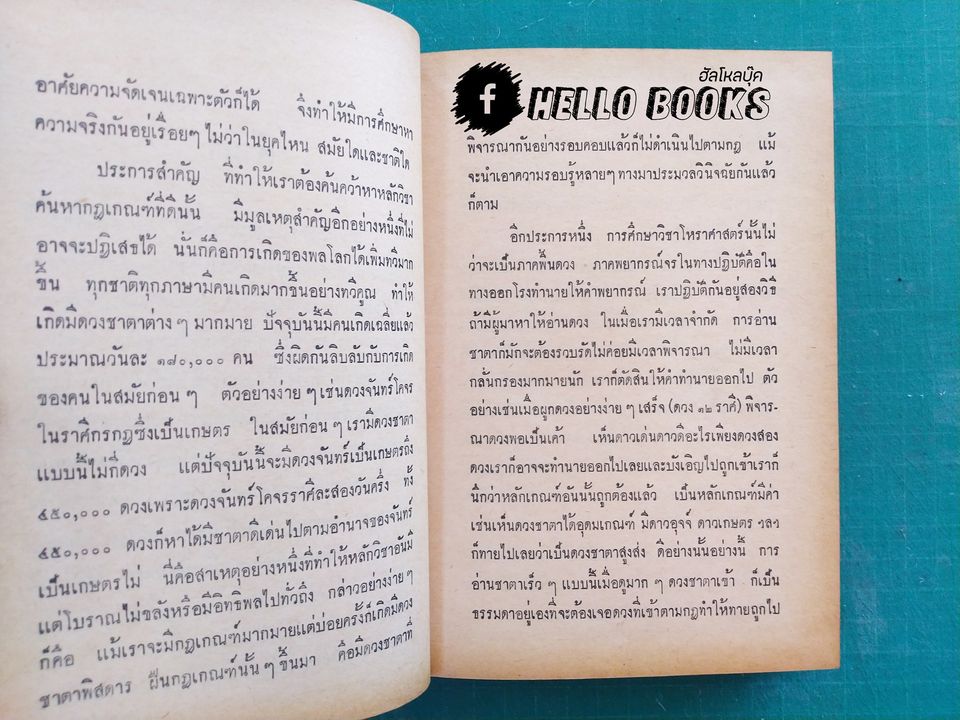 อาศัยความจัดเจนเฉพาะตัวก็ได้ จึงทำให้มีการศึกษาหา
ความจริงกันอยู่เรื่อยๆ ไม่ว่าในยุคไหน สมัยใดและชาติใด
ประการสำคัญ ที่ทำให้เราต้องค้นคว้าหาหลักวิชา
ค้นหากฎเกณฑ์ที่ดีนั้น มีมูลเหตุสำคัญอีกอย่างหนึ่งที่ไม่
อาจจะปฏิเสธได้ นั่นก็คือการเกิดของพลโลกได้เพิ่มทวีมาก
ขึ้น ทุกชาติทุกภาษามีคนเกิดมากขึ้นอย่างทวีคูณ ทำให้
เกิดมีดวงชาตาต่าง ๆ มากมาย ปัจจุบันนี้มีคนเกิดเฉลี่ยแล้ว
ประมาณวันละ ๑๘๐,๐๐๐ คน ซึ่งผิดกันลิบลับกับการเกิด
ของคนในสมัยก่อน ๆ ตัวอย่างง่าย ๆ เช่นดวงจันทร์โคจร
ในราศีกรกฎซึ่งเป็นเกษตร ในสมัยก่อน ๆ เรามีดวงชาตา
แบบนี้ไม่กี่ดวง แต่ปัจจุบันนี้จะมีดวงจันทร์เป็นเกษตรถึง
๔๕๐,๐๐๐ ดวงเพราะดวงจันทร์โคจรราศีละสองวันครึ่ง ทั้ง
๔๕๐,๐๐๐ ดวงก็หาได้มีชาตาดีเด่นไปตามอำนาจของจันทร์
เป็นเกษตรไม่ นี่คือสาเหตุอย่างหนึ่งที่ทำให้หลักวิชาอันมี
แต่โบราณไม่ขลังหรือมีอิทธิพลไปทั่วถึง กล่าวอย่างง่ายๆ
ก็คือ แม้เราจะมีกฎเกณฑ์มากมายแต่บ่อยครั้งก็เกิดมีดวง
ชาตาพิสดาร ฝืนกฎเกณฑ์นั้น ๆ ขึ้นมา คือมีดวงชาตาที่
ฮัลโหลบุ๊ค
f HELLO BOOKS
พิจารณากันอย่างรอบคอบแล้วก็ไม่ดำเนินไปตามกฎ แม้
จะนำเอาความรอบรู้หลายๆ ทางมาประมวลวินิจฉัยกันแล้ว
ก็ตาม
อีกประการหนึ่ง การศึกษาวิชาโหราศาสตร์นั้นไม่
ว่าจะเป็นภาคพื้นดวง ภาคพยากรณ์จรในทางปฏิบัติคือใน
ทางออกโรงทำนายให้คำพยากรณ์ เราปฏิบัติกันอยู่สองวิธี
ถ้ามีผู้มาหาให้อ่านดวง ในเมื่อเรามีเวลาจำกัด การอ่าน
ชาตาก็มักจะต้องรวบรัดไม่ค่อยมีเวลาพิจารณา ไม่มีเวลา
กลั่นกรองมากมายนัก เราก็ตัดสินให้คำทำนายออกไป ตัว
อย่างเช่นเมื่อผูกดวงอย่างง่าย ๆ เสร็จ (ดวง ๑๒ ราศี) พิจาร-
ณาดวงพอเป็นเค้า เห็นดาวเด่นดาวดีอะไรเพียงดวงสอง
ดวงเราก็อาจจะทำนายออกไปเลยและบังเอิญไปถูกเข้าเราก็
นึกว่าหลักเกณฑ์อันนั้นถูกต้องแล้ว เป็นหลักเกณฑ์มีค่า
เช่นเห็นดวงชาตาได้อุดมเกณฑ์ มีดาวอุจจ์ ดาวเกษตร ฯลฯ
ก็ทายไปเลยว่าเป็นดวงชาตาสูงส่ง ดีอย่างนั้นอย่างนี้ การ
อ่านชาตาเร็ว ๆ แบบนี้เมื่อดูมาก ๆ ดวงชาตาเข้า ก็เป็น
ธรรมดาอยู่เองที่จะต้องเจอดวงที่เข้าตามกฎทำให้ทายถูกไป